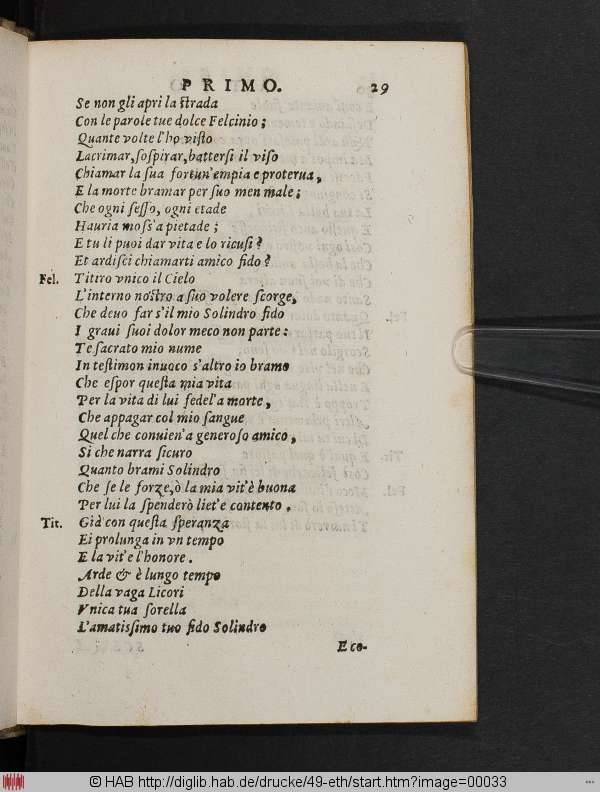 PRIMO. 29
Se non gli apri la ſtrada
Con le parole tue dolce Felcinio;
Quante volte l'ho viſto
Lacrimar, ſoſpirar, batterſi il viſo
Chiamar la ſua fortun'empia e proterua,
E la morte bramar per ſuo men male;
Che ogni ſeſſo, ogni etade
Hauria moſs'a pietade;
E tu li puoi dar vita e lo ricuſi?
Et ardiſci chiamarti amico fido?
Fel. Titiro vnico il Cielo
L'interno noſtro a ſuo volere ſcorge,
Che deuo far s'il mio Solindro fido
I graui ſuoi dolor meco non parte:
Te ſacrato mio nume
In teſtimon inuoco s'altro io bramo
Che eſpor queſta mia vita
Per la vita di lui fedel'a morte,
Che appagar col mio ſangue
Quel che conuien'a generoſo amico,
Si che narra ſicuro
Quanto brami Solindro
Che ſe le forze, ò la mia vit'è buona
Per lui la ſpenderò liet'e contento.
Tit. Già con queſta ſperanza
Ei prolunga in vn tempo
E la vit'e l'honore.
Arde & è lungo tempo
Della vaga Licori
Vnica tua ſorella
L'amatiſſimo tuo fido Solindro
E co-
© HAB http://diglib.hab.de/drucke/49-eth/start.htm?image=00033